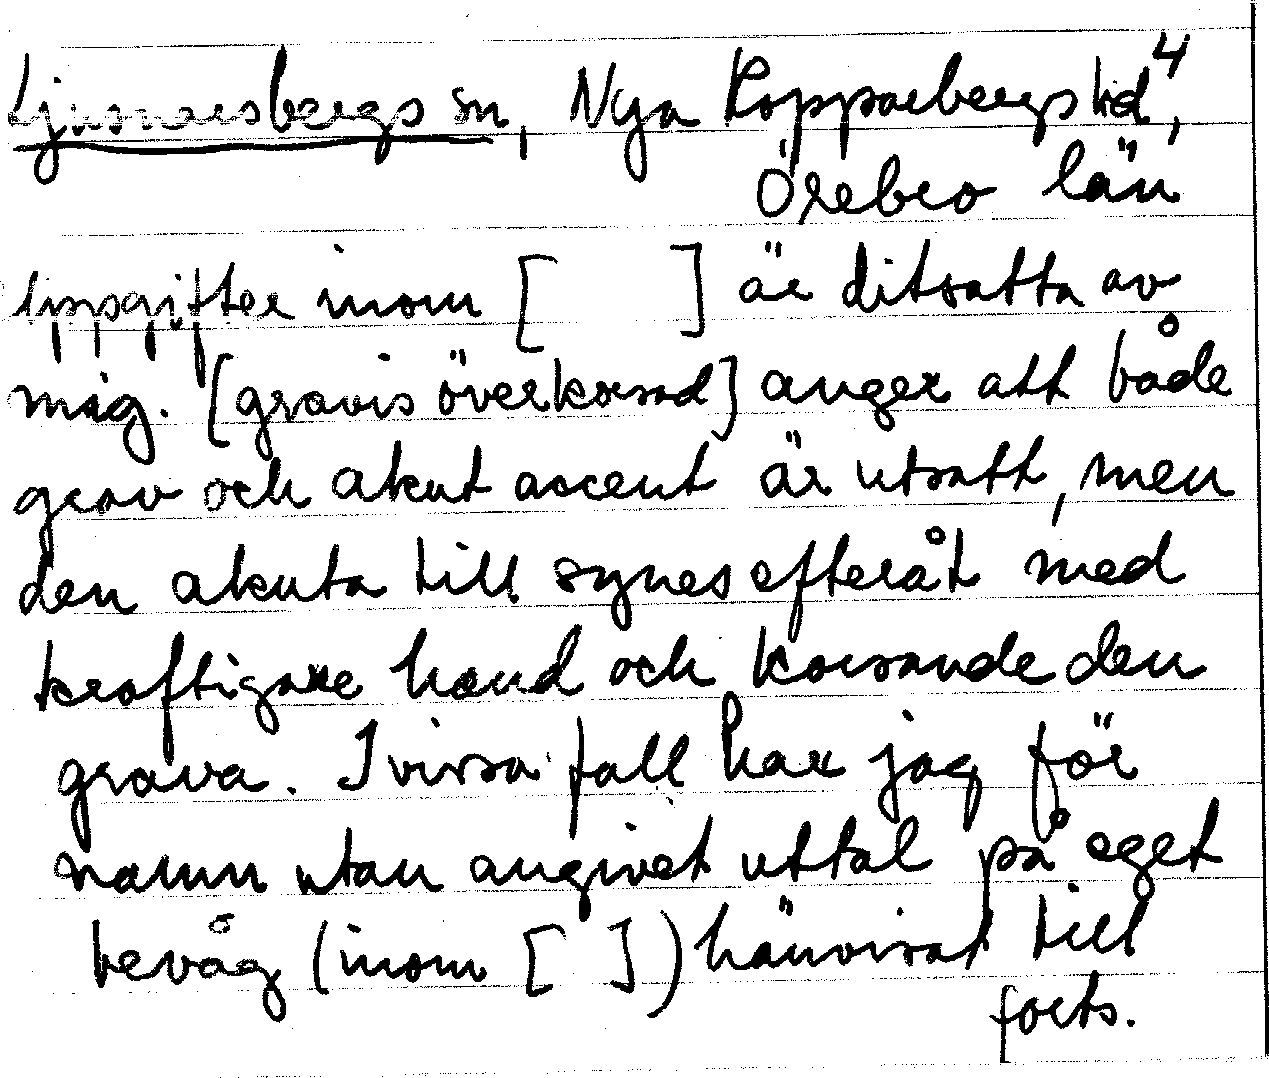 Ljusnarsbergs sn, Nya Kopparbergs hd, 4
Örebro län
Uppgifter inom [ ] är ditsatta av
mig. [gravis överkorsad] anger att både
grav och akut accent är utsatt, men
den akuta till synes efteråt med
kraftigare hand och korsande den
grava. I vissa fall har jag för
namn utan angivet uttal på eget
bevåg (inom [ ]) hänvisat till
forts.